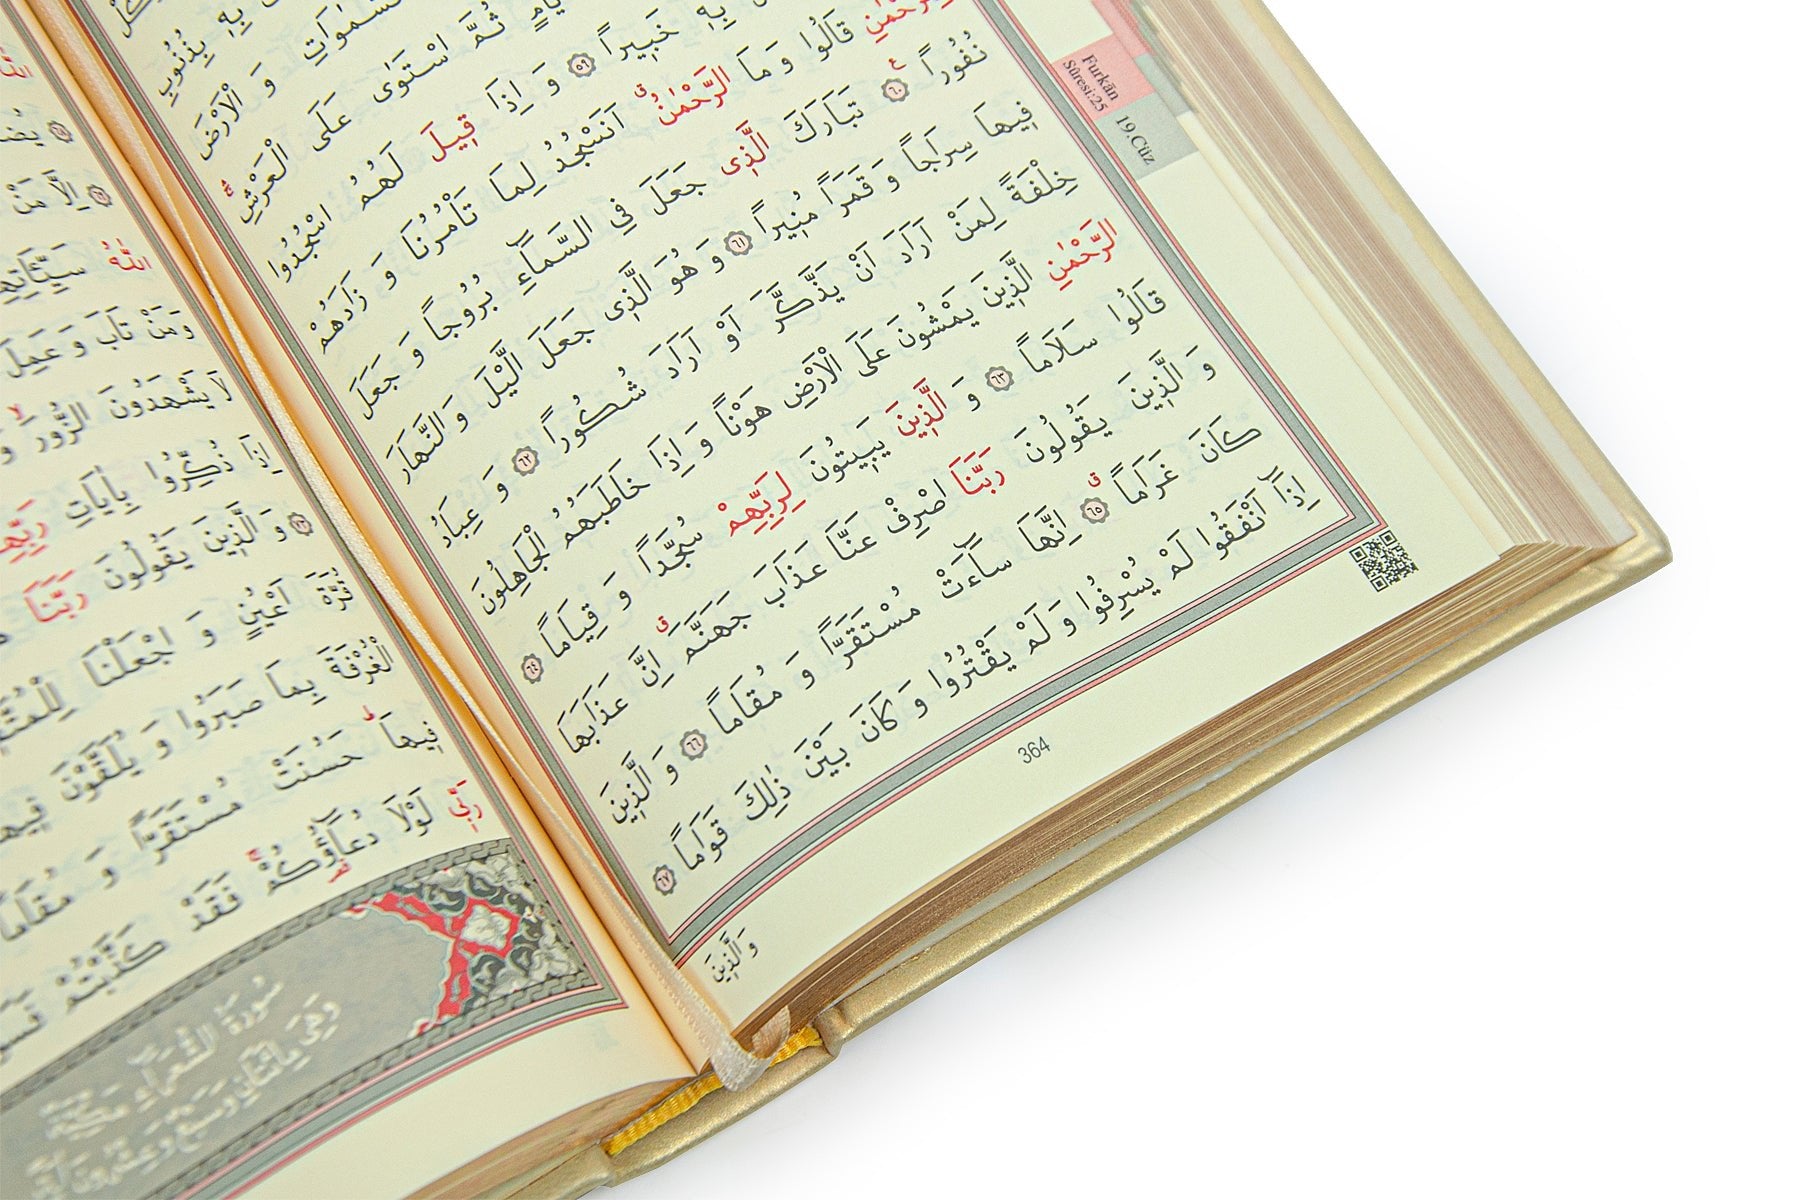 بِهٖ بِذُنُوبِ
السَّمٰوَاتِ وَ الْاَرْضَ
ثُمَّ اسْتَوٰى عَلَى الْعَرْشِ
بِهٖ خَبٖيراً ٥٩ وَ اِذَا قٖيلَ لَهُمُ اسْجُدُوا
قَالُوا وَ مَا الرَّحْمٰنُ اَنَسْجُدُ لِمَا تَأْمُرُنَا وَ زَادَهُمْ
نُفُوراً ٦٠ تَبَارَكَ الَّذٖى جَعَلَ فِي السَّمَٓاءِ بُرُوجاً وَ جَعَلَ
فٖيهَا سِرَاجاً وَ قَمَراً مُنٖيراً ٦١ وَ هُوَ الَّذٖى جَعَلَ الَّيْلَ وَ النَّهَارَ
خِلْفَةً لِمَنْ اَرَادَ اَنْ يَذَّكَّرَ اَوْ اَرَادَ شُكُوراً ٦٢ وَ عِبَادُ
الرَّحْمٰنِ الَّذٖينَ يَمْشُونَ عَلَى الْاَرْضِ هَوْناً وَ اِذَا خَاطَبَهُمُ الْجَاهِلُونَ
قَالُوا سَلَاماً ٦٣ وَ الَّذٖينَ يَبٖيتُونَ لِرَبِّهِمْ سُجَّداً وَ قِيَاماً ٦٤
وَ الَّذٖينَ يَقُولُونَ رَبَّنَا اصْرِفْ عَنَّا عَذَابَ جَهَنَّمَ اِنَّ عَذَابَهَا
كَانَ غَرَاماً ٦٥ اِنَّهَا سَٓاءَتْ مُسْتَقَرًّا وَ مُقَاماً ٦٦ وَ الَّذٖينَ
اِذَٓا اَنْفَقُوا لَمْ يُسْرِفُوا وَ لَمْ يَقْتُرُوا وَ كَانَ بَيْنَ ذٰلِكَ قَوَاماً ٦٧
وَ الَّذٖينَ
364
Furkân
Sûresi:25
19.Cüz
اِلَّا مَنْ
اللّٰهُ سَيِّئَاتِهِمْ
وَ مَنْ تَابَ وَ عَمِلَ
لَا يَشْهَدُونَ الزُّورَ
اِذَا ذُكِّرُوا بِاٰيَاتِ رَبِّهِمْ
وَ الَّذٖينَ يَقُولُونَ رَبَّنَا
قُرَّةَ اَعْيُنٍ وَ اجْعَلْنَا
الْغُرْفَةَ بِمَا صَبَرُوا وَ يُلَقَّوْنَ
فٖيهَا حَسُنَتْ مُسْتَقَرًّا وَ مُقَاماً
رَبّٖى لَوْلَا دُعَٓاؤُكُمْ فَقَدْ كَذَّبْتُمْ
سُورَةُ الشُّعَرَٓاءِ مَكِّيَّةٌ
وَهِىَ مِائَتَانِ وَسَبْعٌ وَعِشْرُونَ